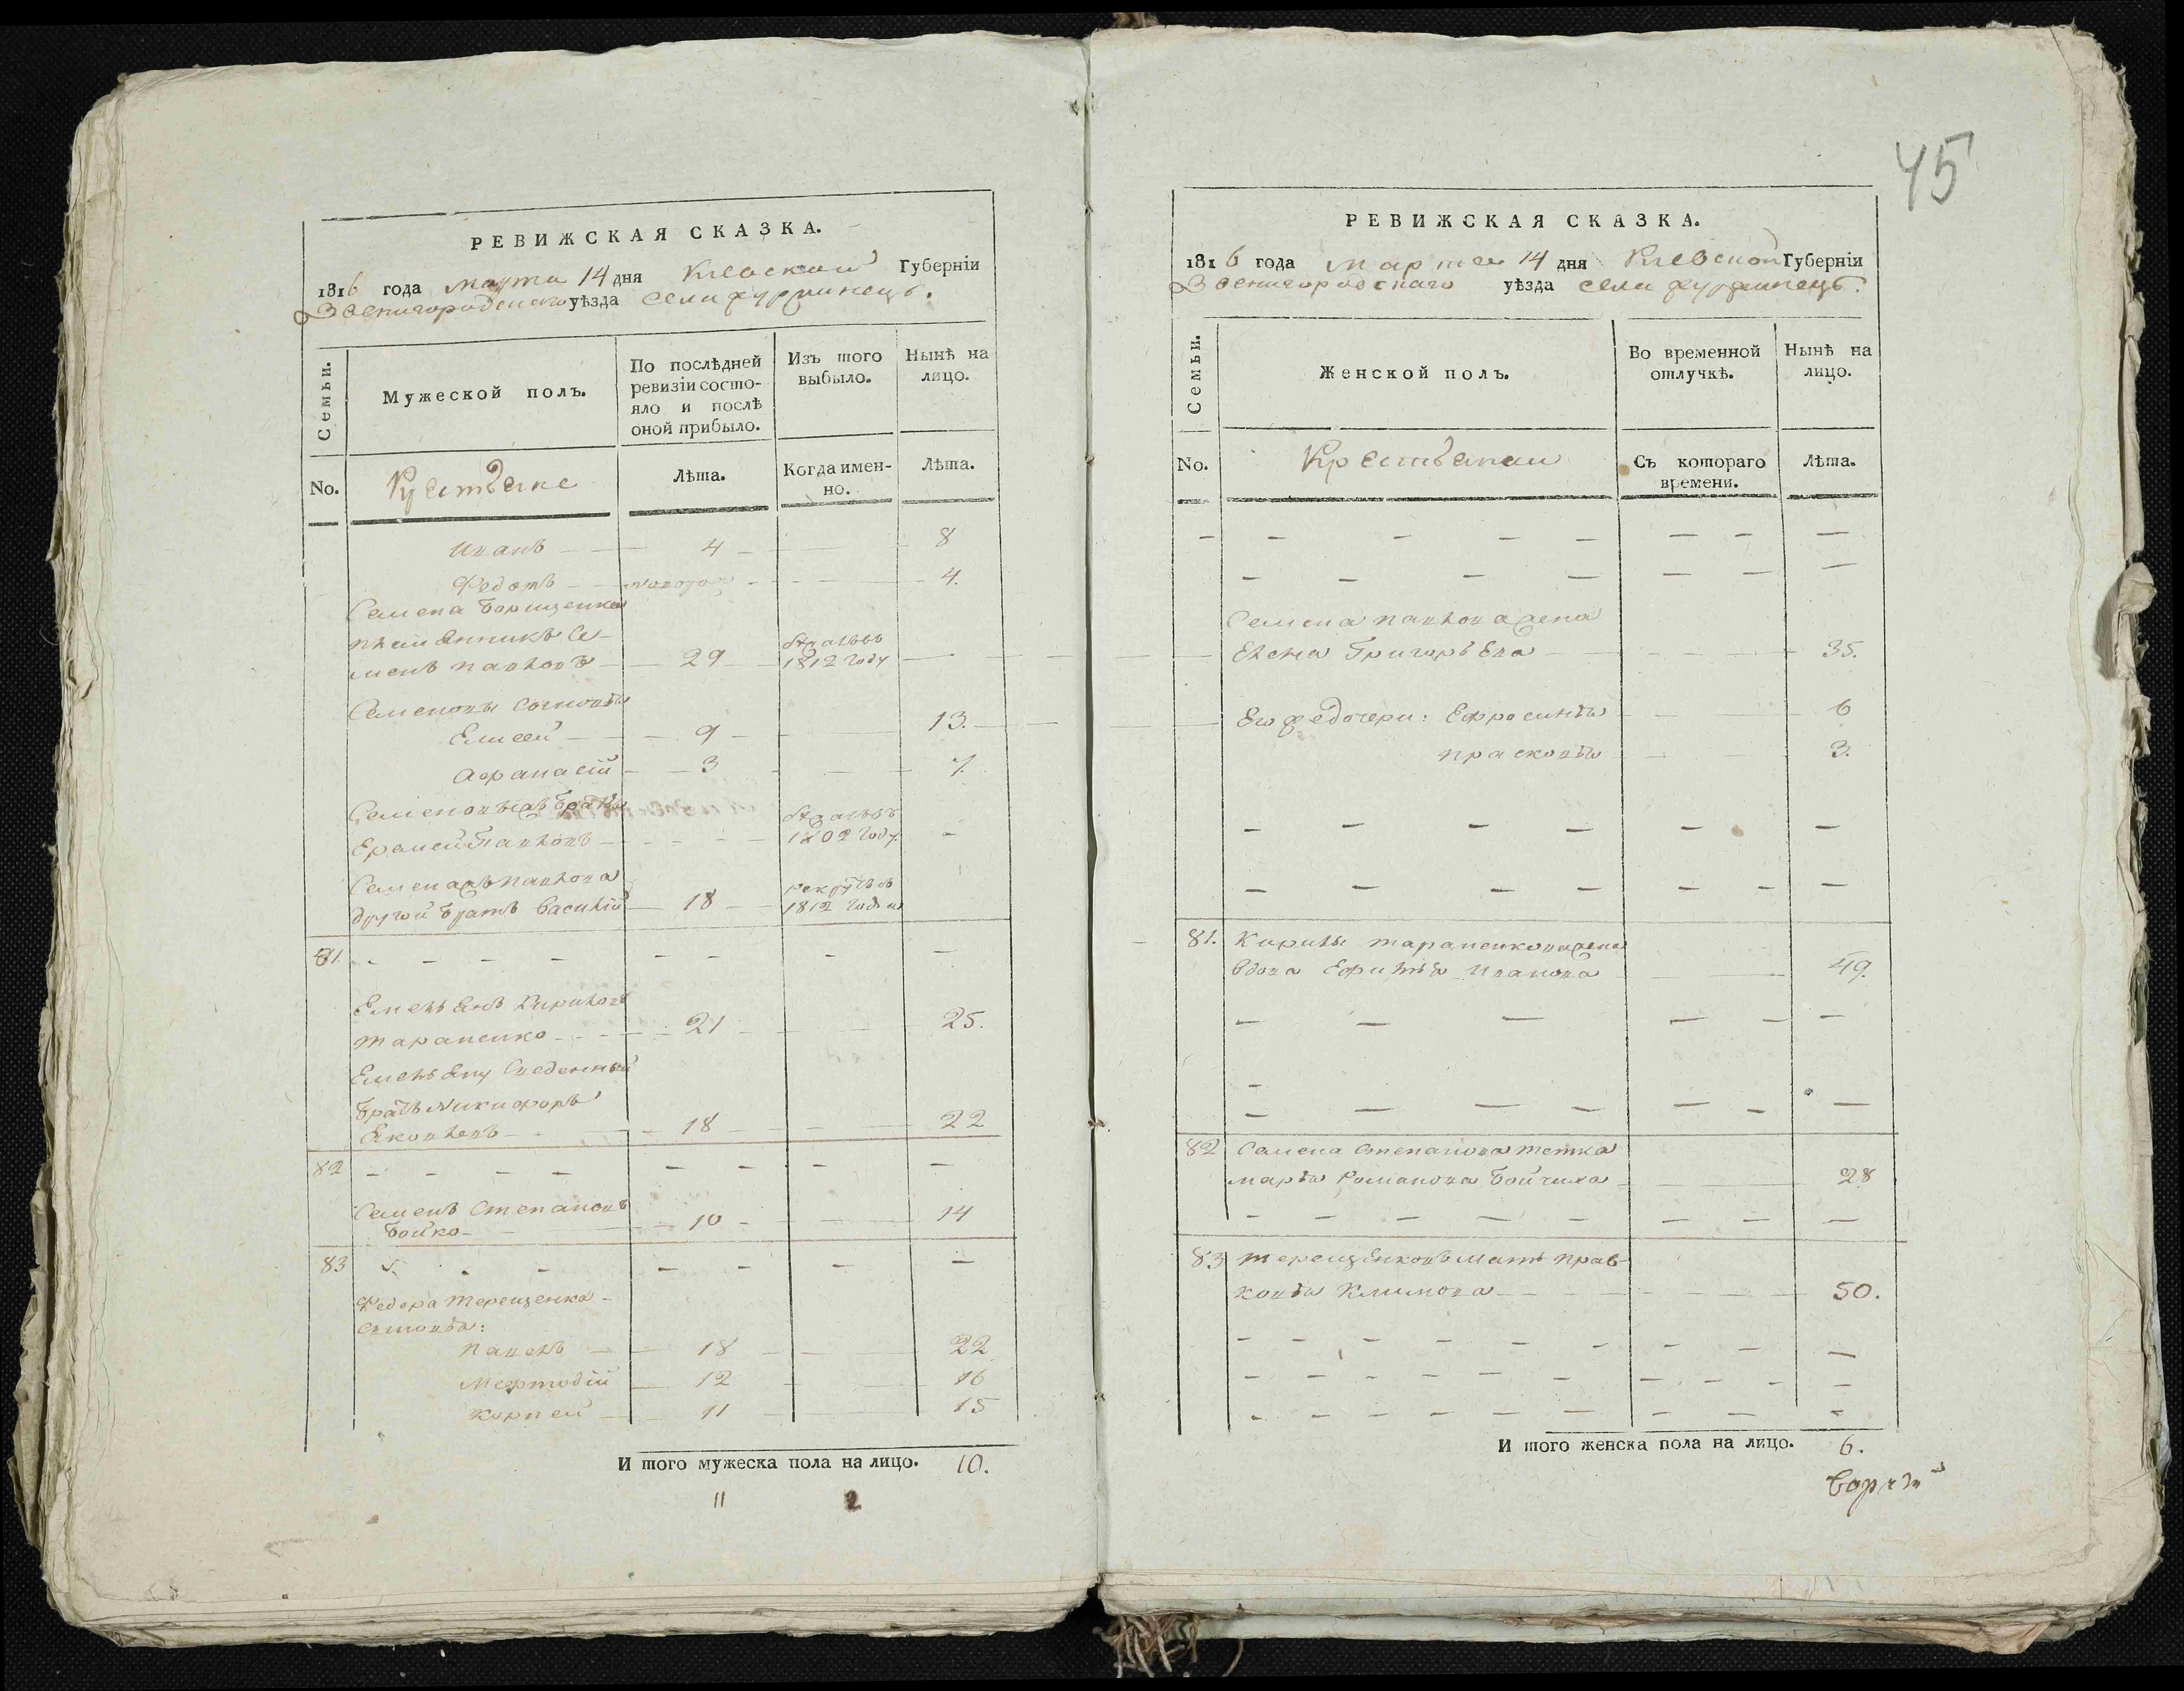 45
РЕВИЖСКАЯ СКАЗКА.
1816 года марта 14 дня Киевской Губерніи
Звенигородскаго уѣзда села
Семьи.
Мужеской полъ.
По послѣдней ревизіи состояло и послѣ оной прибыло.
Изъ того выбыло.
Нынѣ на лицо.
No.
Крестьяне
Лѣта.
Когда именно.
Лѣта.
Иванъ 4 8
Федотъ 4.
Семена Борищенка
племянникъ Се-
менъ Павловъ 29 1812 году
Семеновы сыновья
Елисей 9 13.
Афанасій 3 7.
Семеновъ братъ
Павловъ 1802 году
Семена Павлова
другой братъ Василій 18 рекрутъ въ 1812 годѣ
81.
Емельянъ Кириловъ
Тараненко 21 25.
Емельяну сведенный
братъ Никифоръ
Яковлевъ 18 22
82
Семенъ Степановъ
Бойко 10 14
83
Федора Терещенка
сыновья:
Павелъ 18 22
Мефтодій 12 16
Корней 11 15
И того мужеска пола на лицо. 10.
11 2
РЕВИЖСКАЯ СКАЗКА.
1816 года марта 14 дня Киевской Губерніи
Звенигородскаго уѣзда села
Семьи.
Женской полъ.
Во временной отлучкѣ.
Нынѣ на лицо.
No.
Крестьянки
Съ котораго времени.
Лѣта.
Семена Павлова жена
Елена Григорьева 35.
Его же дочери: Ефросинья 6
Прасковья 3.
81. Кирилы Тараненкова жена
вдова Ефимья Иванова 49.
82 Семена Степанова тетка
Марья Романова Бойчиха 28
83 Терещенковъ мать Прас-
ковья Климова 50.
И того женска пола на лицо. 6.